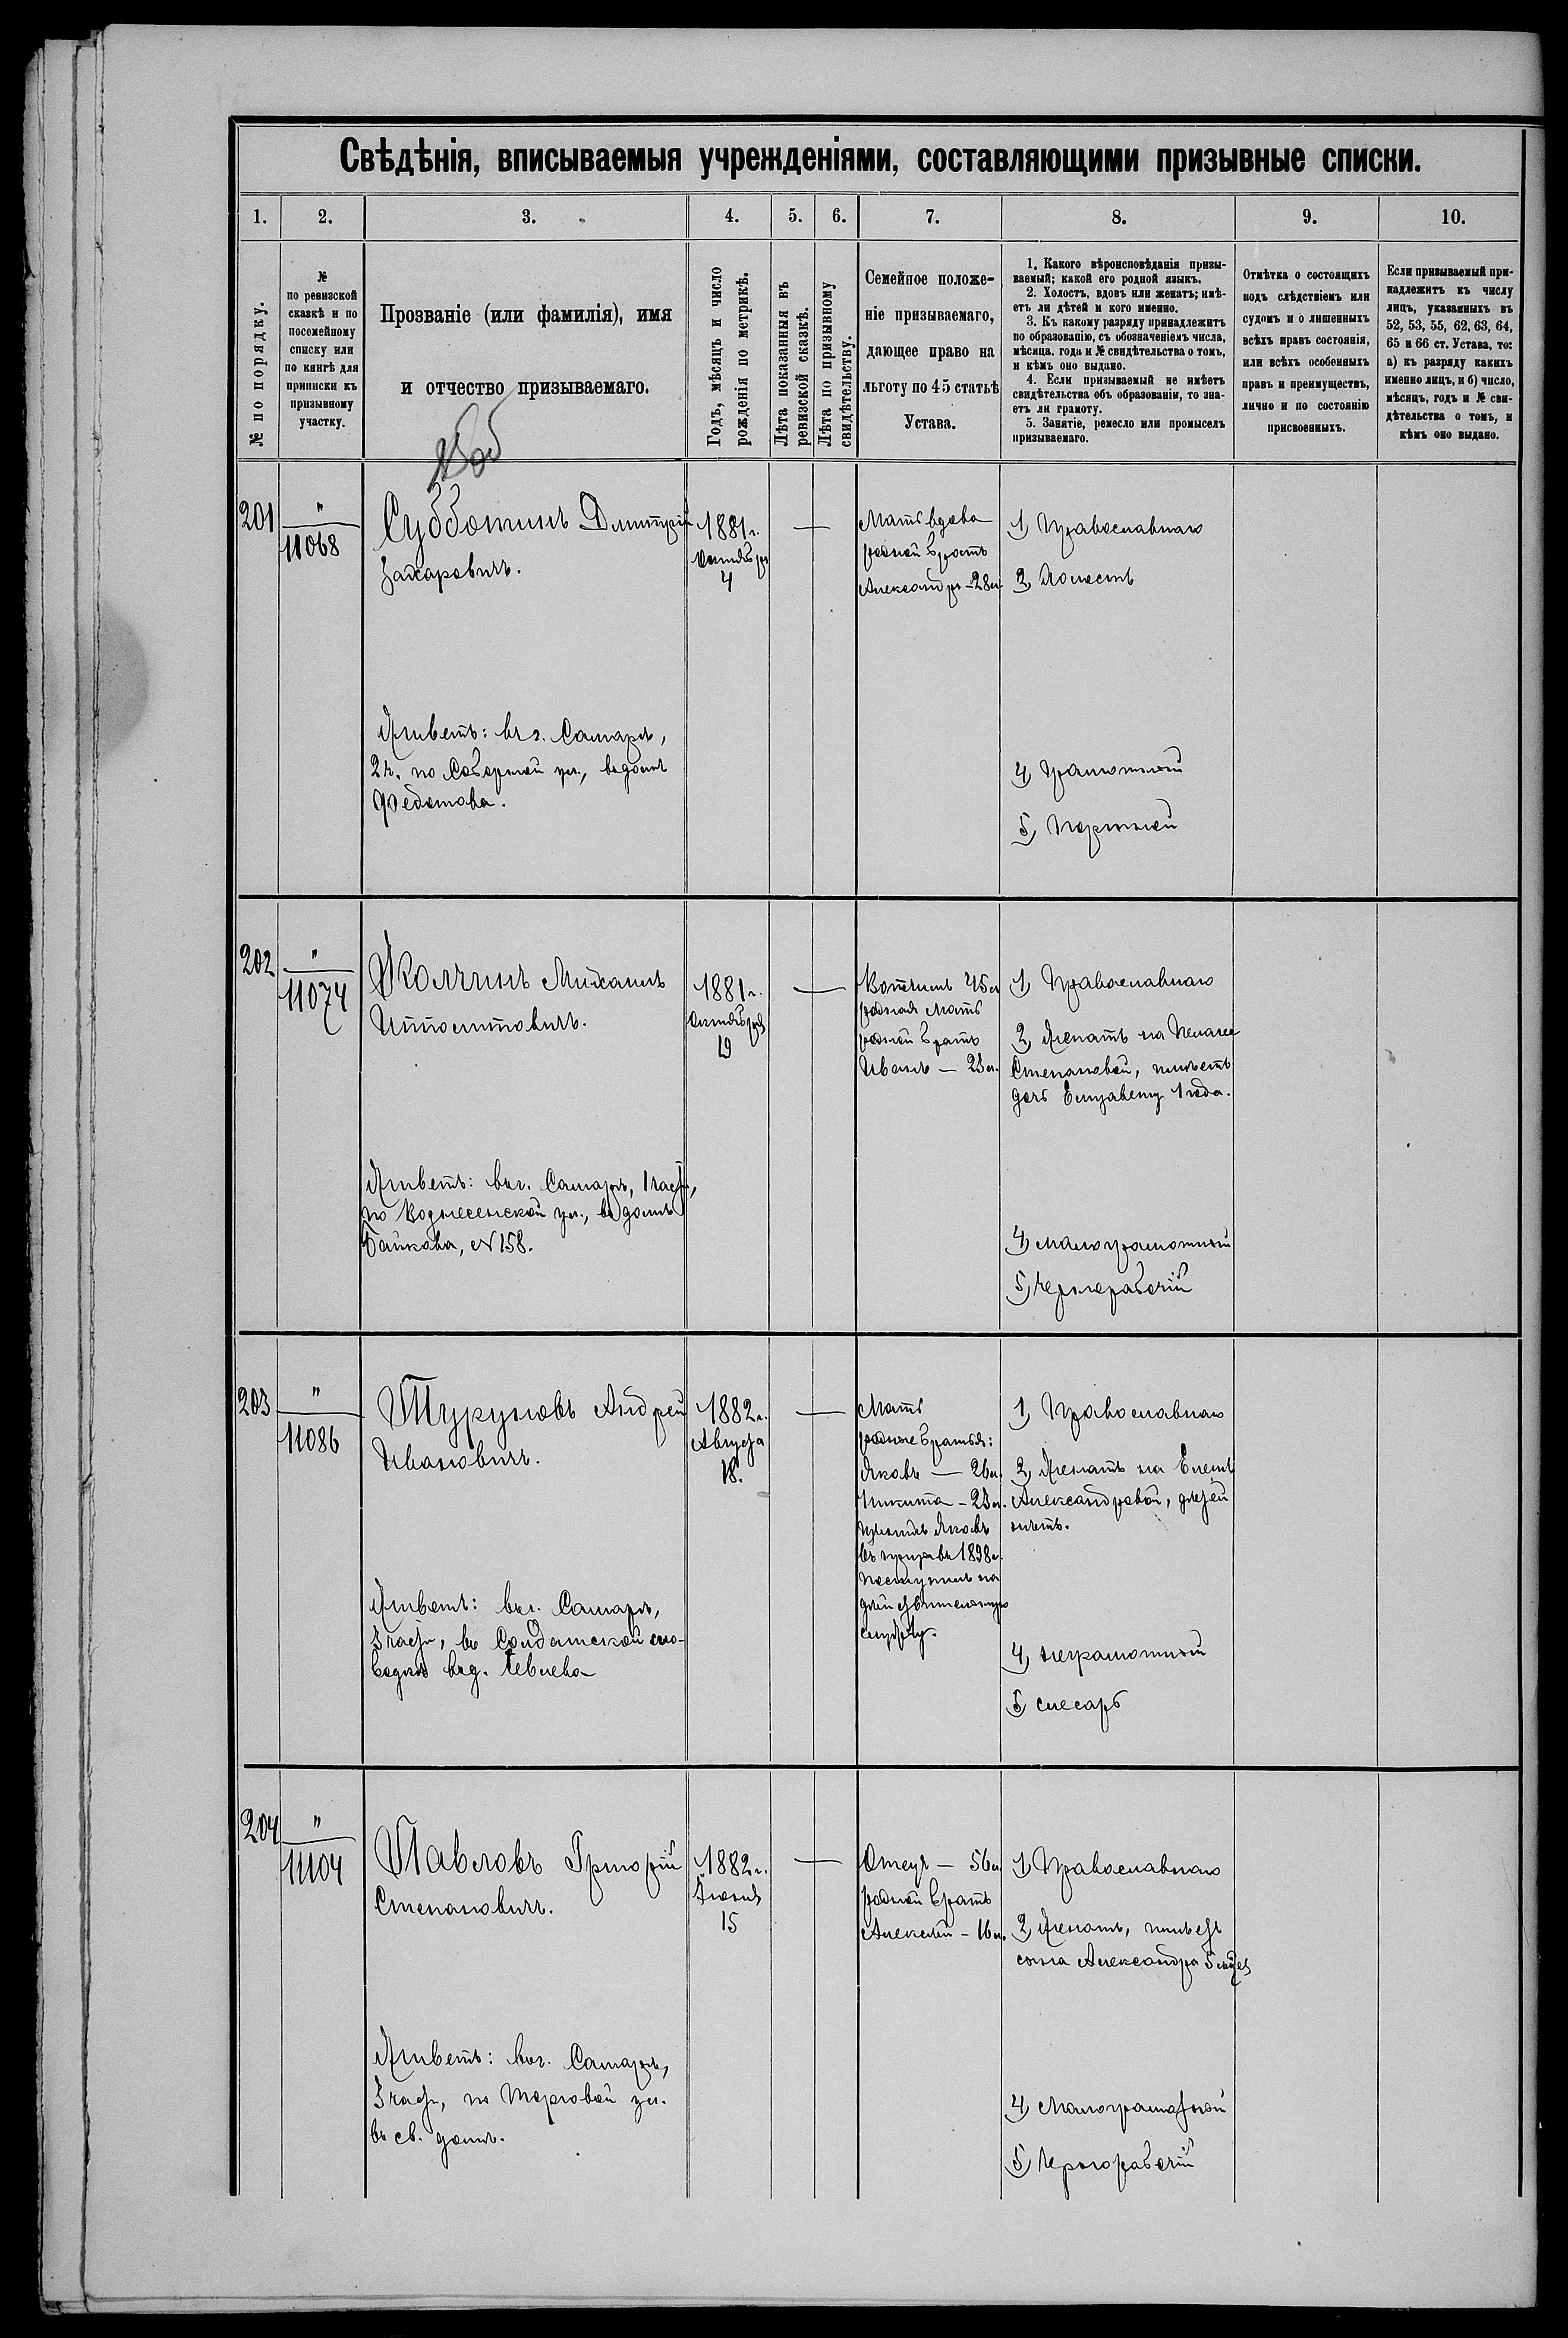 Свѣдѣнія, вписываемыя учрежденіями, составляющими призывные списки.
1. 2. 3. 4. 5. 6. 7. 8. 9. 10.
№ по порядку.
№
по ревизской
сказкѣ и по
посемейному
списку или
по книгѣ для
приписки къ
призывному
участку.
Прозваніе (или фамилія), имя
и отчество призываемаго.
Годъ, мѣсяцъ и число
рожденія по метрикѣ.
Лѣта показанныя въ
ревизской сказкѣ.
Лѣта по призывному
свидѣтельству.
Семейное положе-
ніе призываемаго,
дающее право на
льготу по 45 статьѣ
Устава.
1. Какого вѣроисповѣданія призы-
ваемый; какой его родной языкъ.
2. Холостъ, вдовъ или женатъ; имѣ-
етъ ли дѣтей и кого именно.
3. Къ какому разряду принадлежитъ
по образованію, съ обозначеніемъ числа,
мѣсяца, года и № свидѣтельства о томъ,
и кѣмъ оно выдано.
4. Если призываемый не имѣетъ
свидѣтельства объ образованіи, то зна-
етъ ли грамоту.
5. Занятіе, ремесло или промыселъ
призываемаго.
Отмѣтка о состоящихъ
подъ слѣдствіемъ или
судомъ и о лишенныхъ
всѣхъ правъ состоянія,
или всѣхъ особенныхъ
правъ и преимуществъ,
лично и по состоянію
присвоенныхъ.
Если призываемый при-
надлежитъ къ числу
лицъ, указанныхъ въ
52, 53, 55, 62, 63, 64,
65 и 66 ст. Устава, то:
а) къ разряду какихъ
именно лицъ, и б) число,
мѣсяцъ, годъ и № сви-
дѣтельства о томъ, и
кѣмъ оно выдано.
201
"
11068
Субботинъ Дмитрій
Захаровичъ.
Живетъ: въ г. Самарѣ,
2 ч. по Соборной ул., въ домѣ
Федотова.
1881 г.
Октября
4
—
Мать вдова
родной братъ
Александръ - 28 л.
1) Православнаго
2) Холостъ
4) Грамотный
5) Портной
202
"
11074
Жолчинъ Михаилъ
Ипполитовичъ.
Живетъ: въ г. Самарѣ, 1 части,
по Вознесенской ул., въ домѣ
Байкова, № 158.
1881 г.
Октября
19
—
Вотчимъ 45 л.
родная мать
родной братъ
Иванъ — 23 л.
1) Православнаго
2) Женатъ на Пелагее
Степановой, имѣетъ
дочь Елизавету 1 года.
4) малограмотный
5) чернорабочій
203
"
11086
Туруновъ Андрей
Ивановичъ.
Живетъ: въ г. Самарѣ,
3 части, въ Солдатской сло-
бодкѣ въ д.
1882 г.
Августа
18.
—
Мать
родные братья:
Яковъ — 26 л.
Никита - 23 л.
Яковъ
въ призывъ 1898 г.
поступилъ на
дѣйствительную
службу.
1) Православнаго
2) Женатъ на Еленѣ
Александровой, дѣтей
нѣтъ.
4) неграмотный
5) слесарь
204
"
11104
Павловъ Григорій
Степановичъ.
Живетъ: въ г. Самарѣ,
3 части, по Торговой ул.
въ св. домѣ.
1882 г.
Іюня
15
—
Отецъ — 56 л.
родной братъ
Алексѣй - 16 л.
1) Православнаго
2) Женатъ, имѣетъ
сына Александра 5 мѣс.
4) Малограмотный
5) Чернорабочій